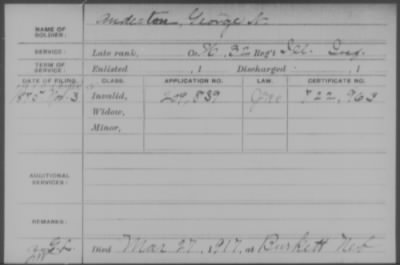 NAME OF SOLDIER: Anderson, George W.
SERVICE: Late rank, Co. H, 32 Reg't Ill. Inf.
TERM OF SERVICE: Enlisted , 1 Discharged , 1
DATE OF FILING. CLASS. APPLICATION NO. LAW. CERTIFICATE NO.
3 Invalid, 209,839 722,963
Widow,
Minor,
ADDITIONAL SERVICES:
REMARKS:
Died Mar 27, 1917, at Burkett Neb